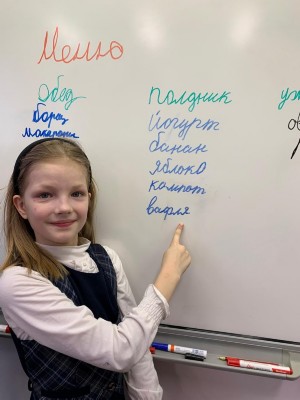 Меню
Обед
борщ
макароны
полдник
йогурт
банан
яблоко
компот
вафля
уж